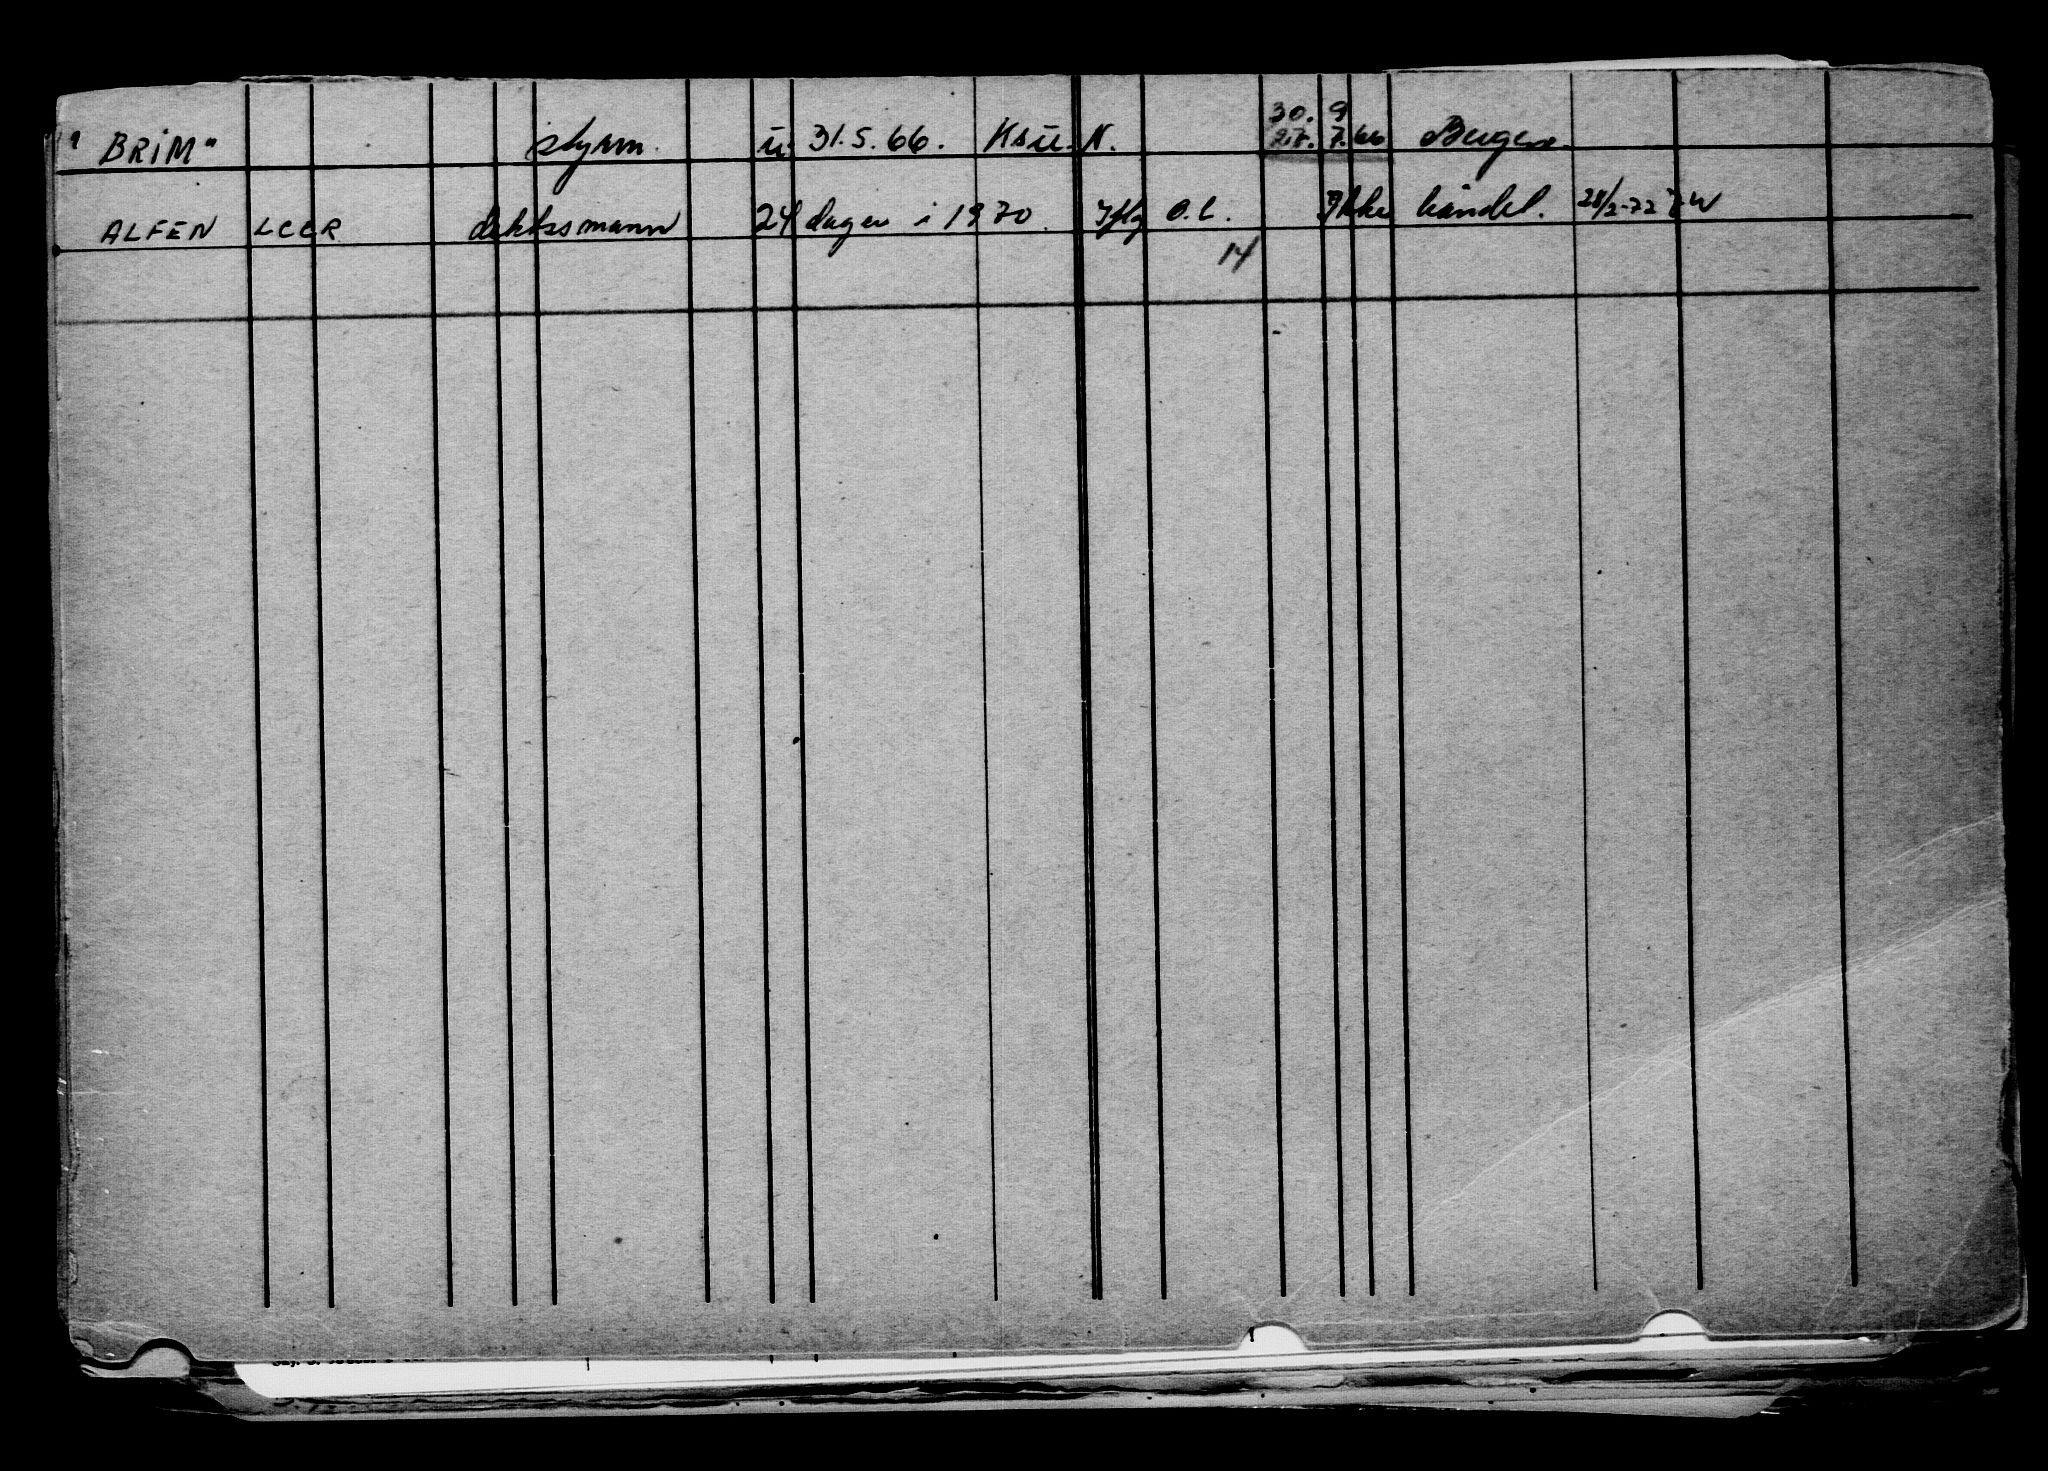 30. 9
"BRIM" styrm. u. 31.5.66. Ksu. N. 7.66 Bergen
ALFEN LCCR dekksmann 24 dager i 1970. Iflg O.L. Ikke handel. 28/2-72
14